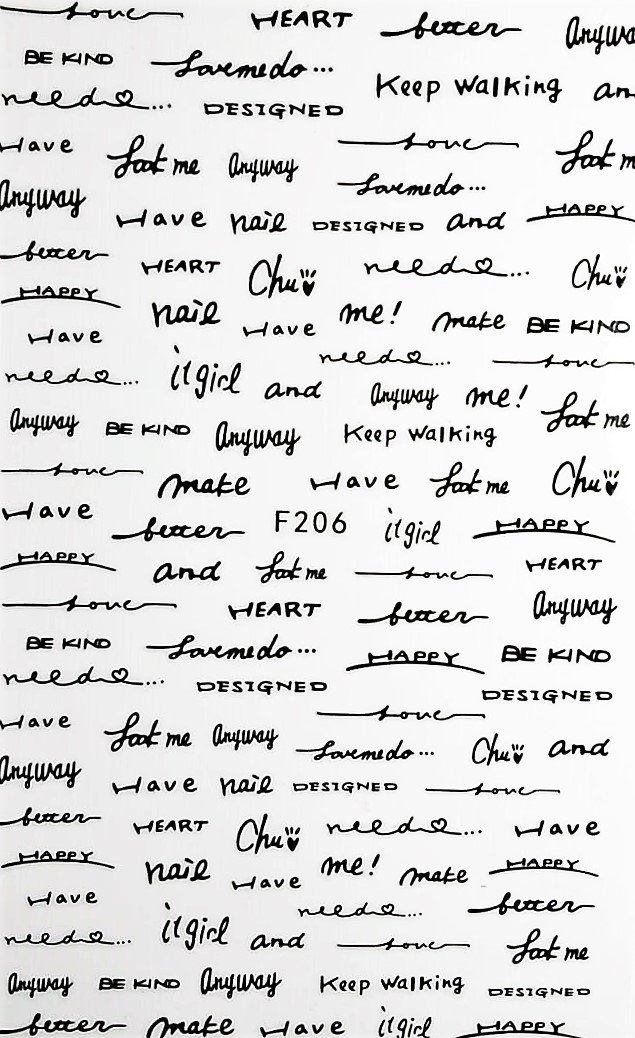 love HEART better Anyway
BE KIND Lovemedo...
need... Keep walking and
DESIGNED
Have Look me Anyway love Look me
Anyway Lovemedo...
Have nail DESIGNED and HAPPY
better HEART Chu need... Chu
HAPPY nail Have me! make BE KIND
Have need... love
need... it girl and Anyway me! Look me
Anyway BE KIND Anyway Keep walking
love make Have Look me Chu
Have better F206 it girl HAPPY
HAPPY and Look me love HEART
love HEART better Anyway
BE KIND Lovemedo... HAPPY BE KIND
need... DESIGNED DESIGNED
Have Look me Anyway love
Lovemedo... Chu and
Anyway Have nail DESIGNED love
better HEART Chu need... Have
HAPPY nail Have me! make HAPPY
Have need... better
need... it girl and love Look me
Anyway BE KIND Anyway Keep walking DESIGNED
better make Have it girl HAPPY